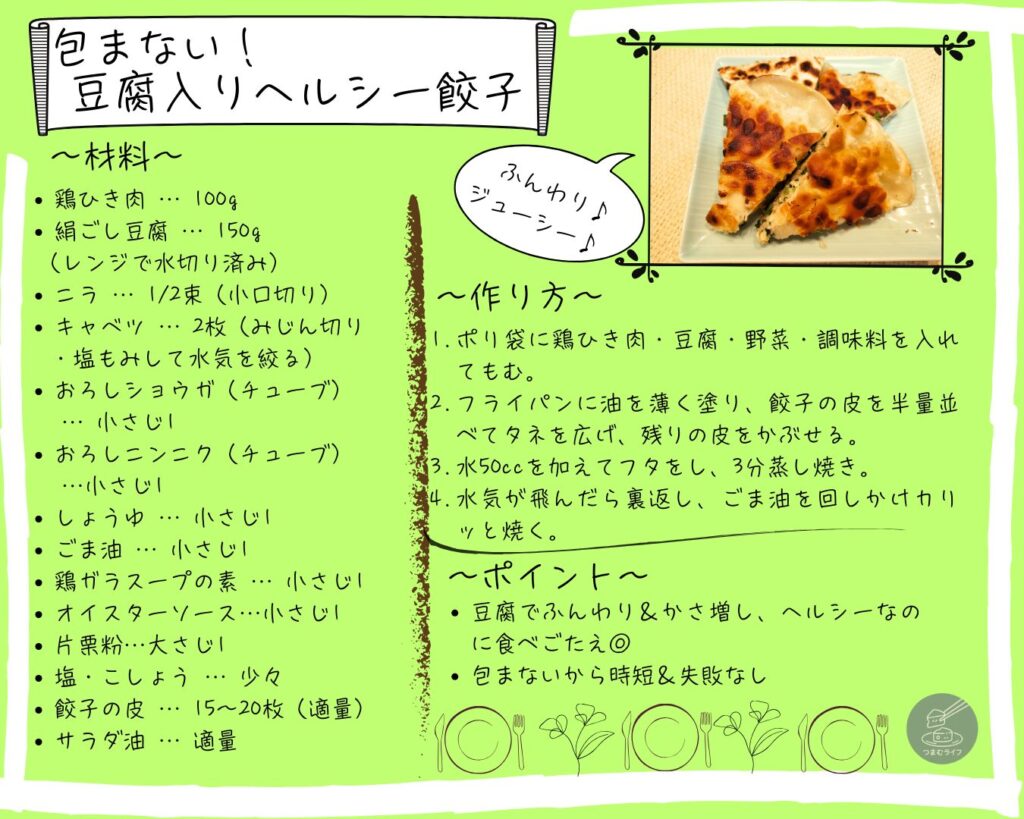 包まない！
豆腐入りヘルシー餃子
～材料～
• 鶏ひき肉 … 100g
• 絹ごし豆腐 … 150g
（レンジで水切り済み）
• ニラ … 1/2束（小口切り）
• キャベツ … 2枚（みじん切り
・塩もみして水気を絞る）
• おろしショウガ（チューブ）
… 小さじ1
• おろしニンニク（チューブ）
…小さじ1
• しょうゆ … 小さじ1
• ごま油 … 小さじ1
• 鶏ガラスープの素 … 小さじ1
• オイスターソース…小さじ1
• 片栗粉…大さじ1
• 塩・こしょう … 少々
• 餃子の皮 … 15～20枚（適量）
• サラダ油 … 適量
ふんわり♪
ジューシー♪
～作り方～
1. ポリ袋に鶏ひき肉・豆腐・野菜・調味料を入れ
てもむ。
2. フライパンに油を薄く塗り、餃子の皮を半量並
べてタネを広げ、残りの皮をかぶせる。
3. 水50ccを加えてフタをし、3分蒸し焼き。
4. 水気が飛んだら裏返し、ごま油を回しかけカリ
ッと焼く。
～ポイント～
• 豆腐でふんわり＆かさ増し、ヘルシーなの
に食べごたえ◎
• 包まないから時短＆失敗なし
つまむライフ